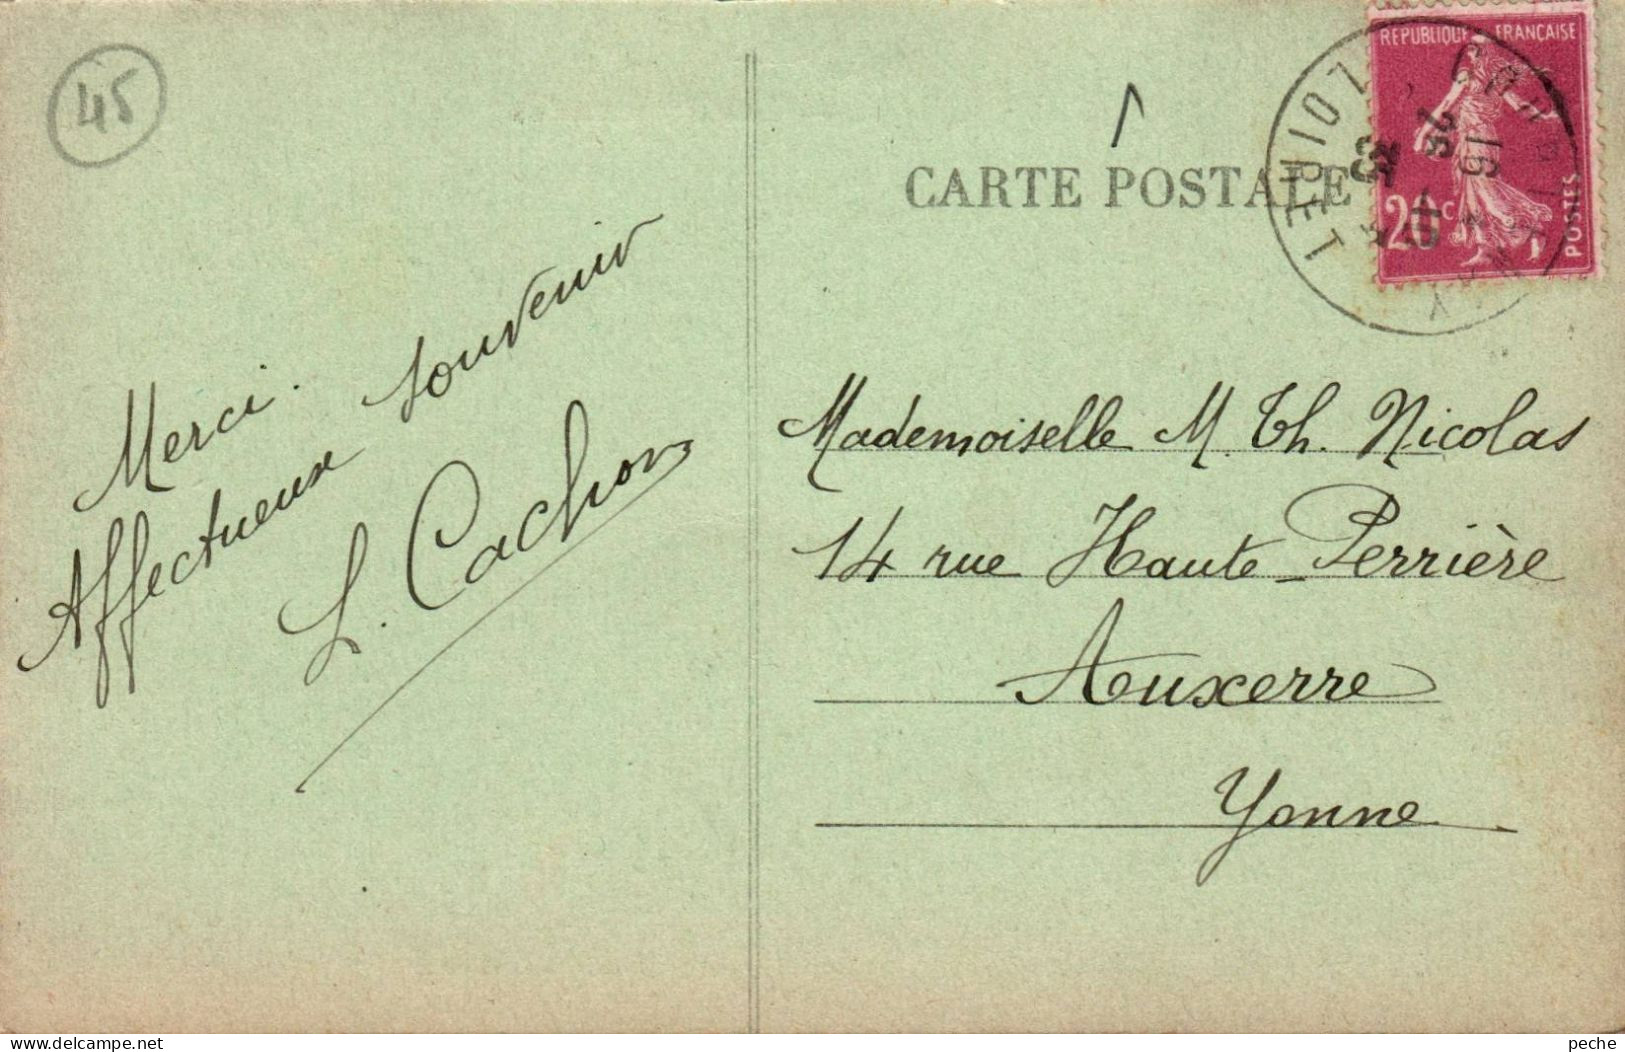 45
CARTE POSTALE
REPUBLIQUE FRANÇAISE
20c
POSTES
LOIRET
Merci.
Affectueux souvenir
L. Cachon
Mademoiselle M. Th. Nicolas
14 rue Haute-Perrière
Auxerre
Yonne
peche
Delcampe.net